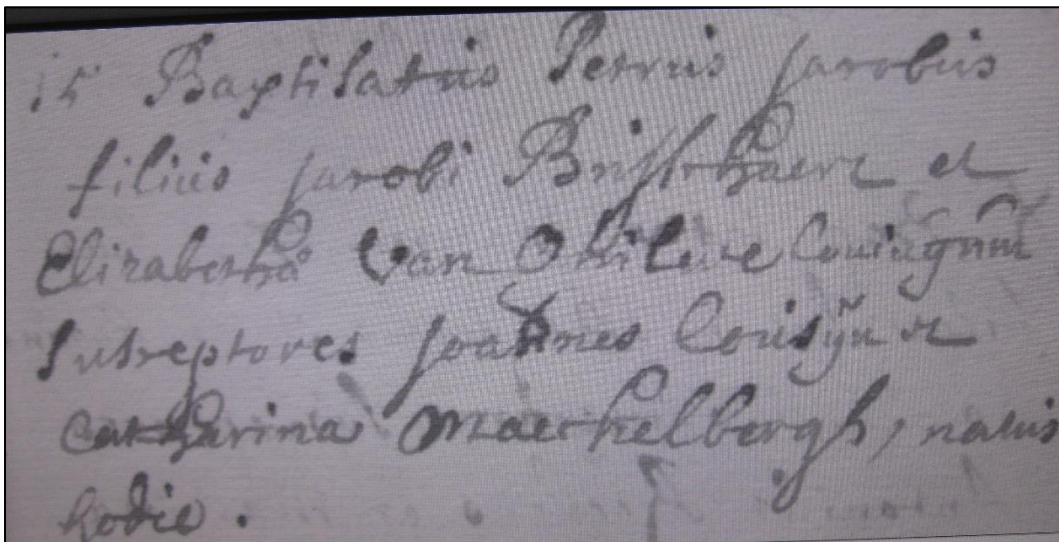 15 Baptisatus Petrus Jacobus
filius Jacobi et
Elizabetha Van Coniugum
Susceptores Joannes Cousijn et
Catharina Maechelbergh, natus
hodie.